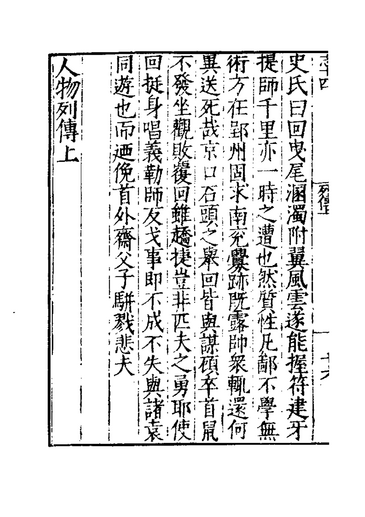 史氏曰回曳尾溷濁附翼風雲遂能握符建牙
提師千里亦一時之遭也然質性凡鄙不學無
術方在郢州固求南兖釁跡既露帥衆輒還何
異送死哉京口石頭之舉回皆與謀碩卒首鼠
不發坐觀敗覆回雖趫捷豈非匹夫之勇耶使
回挺身唱義勒師反戈事即不成不失與諸袁
同遊也而迺俛首外齋父子駢戮悲夫
人物列傳上